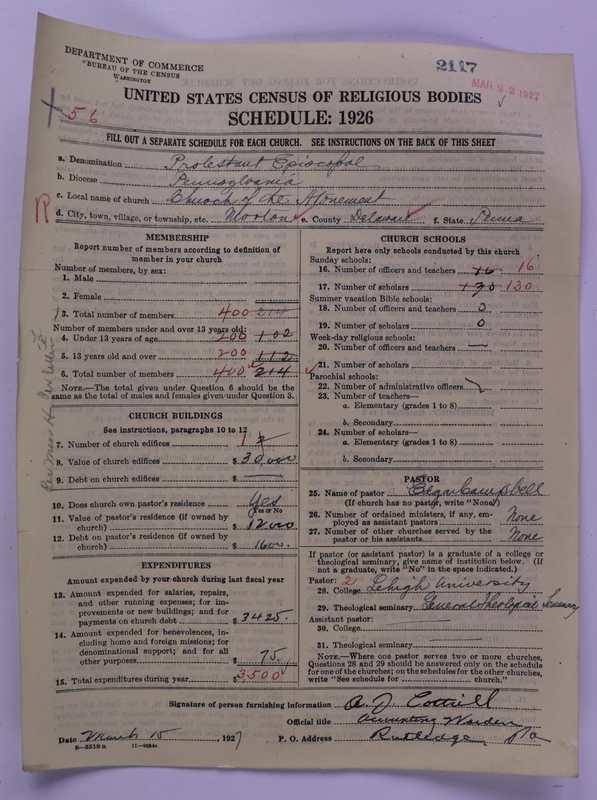 DEPARTMENT OF COMMERCE
BUREAU OF THE CENSUS
WASHINGTON
2117
MAR 22 1927
56
UNITED STATES CENSUS OF RELIGIOUS BODIES
SCHEDULE: 1926
FILL OUT A SEPARATE SCHEDULE FOR EACH CHURCH. SEE INSTRUCTIONS ON THE BACK OF THIS SHEET
a. Denomination Protestant Episcopal
b. Diocese Pennsylvania
c. Local name of church Church of the Atonement
R d. City, town, village, or township, etc. Morton e. County Delaware f. State Penna
MEMBERSHIP
Report number of members according to definition of
member in your church
Number of members, by sex:
1. Male
2. Female
3. Total number of members 400 214
Number of members under and over 13 years old:
4. Under 13 years of age 200 102
5. 13 years old and over 200 112
6. Total number of members 400 214
NOTE.—The total given under Question 6 should be the
same as the total of males and females given under Question 3.
CHURCH BUILDINGS
See instructions, paragraphs 10 to 12
7. Number of church edifices 1 2
8. Value of church edifices $ 30,000
9. Debt on church edifices $
10. Does church own pastor's residence? Yes
(Yes or No)
11. Value of pastor's residence (if owned by
church) $ 12000
12. Debt on pastor's residence (if owned by
church) $ 1600.
EXPENDITURES
Amount expended by your church during last fiscal year
13. Amount expended for salaries, repairs,
and other running expenses; for im-
provements or new buildings; and for
payments on church debt $ 3425.
14. Amount expended for benevolences, in-
cluding home and foreign missions; for
denominational support; and for all
other purposes $ 75.
15. Total expenditures during year $ 3500
CHURCH SCHOOLS
Report here only schools conducted by this church
Sunday schools:
16. Number of officers and teachers 16 16
17. Number of scholars 130 130
Summer vacation Bible schools:
18. Number of officers and teachers 0
19. Number of scholars 0
Week-day religious schools:
20. Number of officers and teachers —
21. Number of scholars
Parochial schools:
22. Number of administrative officers
23. Number of teachers—
a. Elementary (grades 1 to 8)
b. Secondary
24. Number of scholars—
a. Elementary (grades 1 to 8)
b. Secondary
PASTOR
25. Name of pastor Campbell
(If church has no pastor, write "None")
26. Number of ordained ministers, if any, em-
ployed as assistant pastors None
27. Number of other churches served by the
pastor or his assistants None
If pastor (or assistant pastor) is a graduate of a college or
theological seminary, give name of institution below. (If
not a graduate, write "No" in the space indicated.)
Pastor: 2
28. College Lehigh University
29. Theological seminary General Theological Seminary
Assistant pastor:
30. College
31. Theological seminary
NOTE.—Where one pastor serves two or more churches,
Questions 28 and 29 should be answered only on the schedule
for one of the churches; on the schedules for the other churches,
write "See schedule for church."
Signature of person furnishing information A. J. Cottrell
Official title Accounting Warden
Date March 15, 1927 P. O. Address Rutledge Pa
8-5518a 11-9054